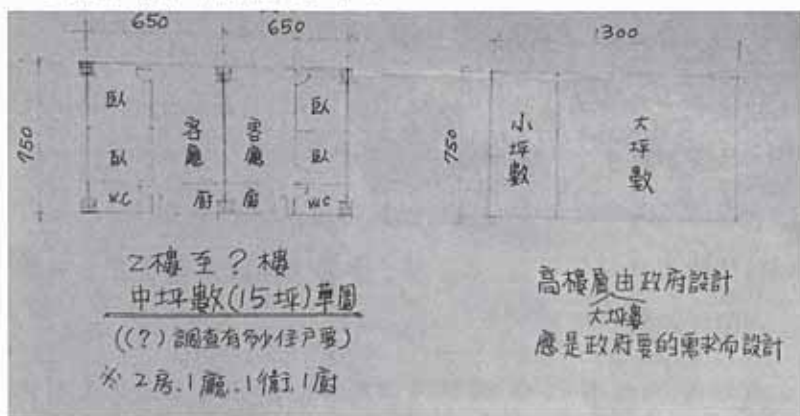 650
650
1300
750
臥
臥
WC
客廳
廚
客廳
廚
臥
臥
WC
750
小坪數
大坪數
2樓至?樓
中坪數(15坪)草圖
((?)調查有多少住戶要)
※2房.1廳.1衛.1廚
高樓層由政府設計
大坪數
應是政府要的需求而設計